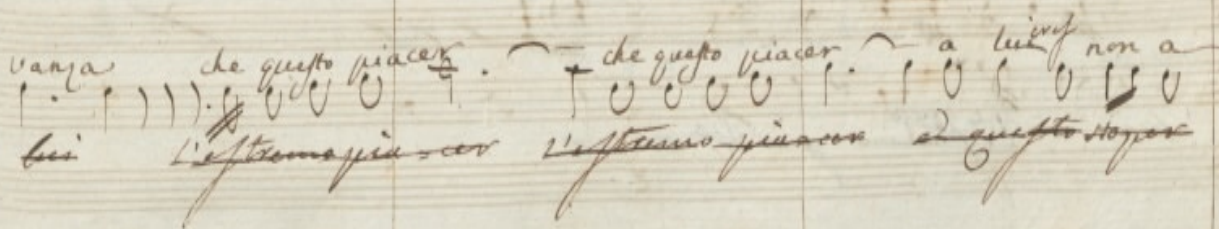 vanza che questo piacer che questo piacer a lui non a
lui l'estremo piacer l'estremo piacer a questo